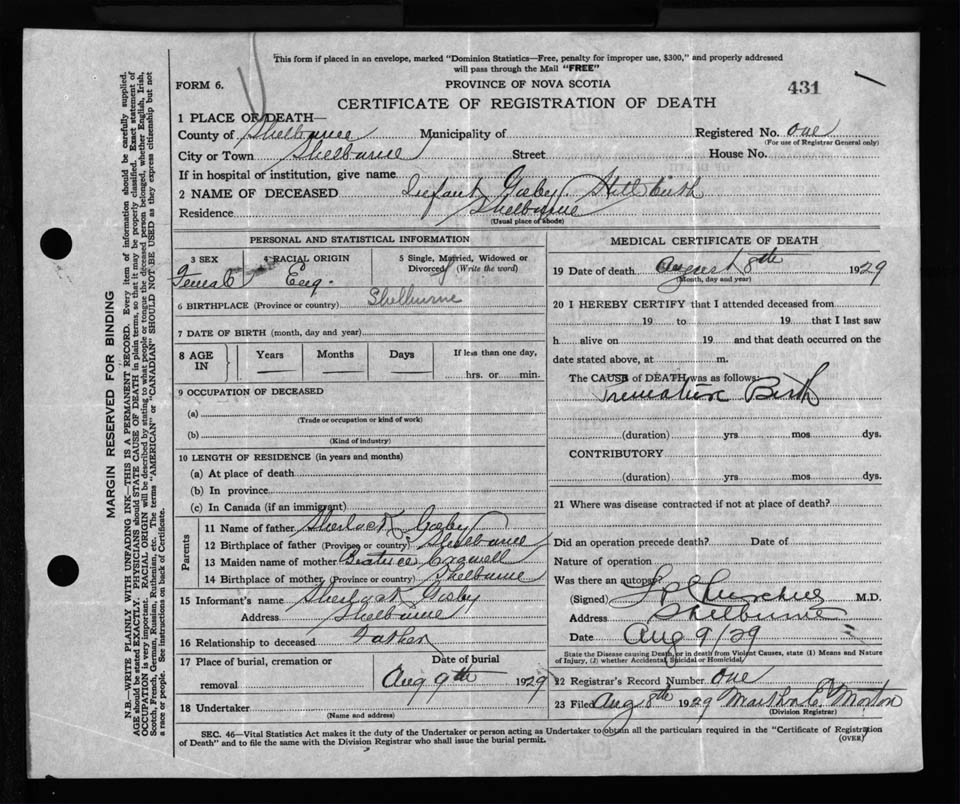 This form if placed in an envelope, marked "Dominion Statistics—Free, penalty for improper use, $300," and properly addressed
will pass through the Mail "FREE"
FORM 6.
PROVINCE OF NOVA SCOTIA
431
CERTIFICATE OF REGISTRATION OF DEATH
1 PLACE OF DEATH—
County of Shelburne Municipality of Registered No. one
(For use of Registrar General only)
City or Town Shelburne Street House No.
If in hospital or institution, give name
2 NAME OF DECEASED Infant Gisby Still birth
Residence Shelburne
(Usual place of abode)
PERSONAL AND STATISTICAL INFORMATION
3 SEX 4 RACIAL ORIGIN 5 Single, Married, Widowed or
Divorced (Write the word)
Female Eng.
6 BIRTHPLACE (Province or country) Shelburne
7 DATE OF BIRTH (month, day and year)
8 AGE IN Years Months Days If less than one day,
hrs. or min.
9 OCCUPATION OF DECEASED
(a)
(Trade or occupation or kind of work)
(b)
(Kind of industry)
10 LENGTH OF RESIDENCE (in years and months)
(a) At place of death
(b) In province
(c) In Canada (if an immigrant)
Parents
11 Name of father Sherlock Gisby
12 Birthplace of father (Province or country) Shelburne
13 Maiden name of mother Beatrice
14 Birthplace of mother (Province or country) Shelburne
15 Informant's name Sherlock Gisby
Address Shelburne
16 Relationship to deceased Father
17 Place of burial, cremation or Date of burial
removal Aug 9th 1929
18 Undertaker
(Name and address)
MEDICAL CERTIFICATE OF DEATH
19 Date of death August 8th 1929
(Month, day and year)
20 I HEREBY CERTIFY that I attended deceased from
19 to 19 that I last saw
h alive on 19 and that death occurred on the
date stated above, at m.
The CAUSE of DEATH was as follows:
Premature Birth
(duration) yrs mos dys.
CONTRIBUTORY
(duration) yrs mos dys.
21 Where was disease contracted if not at place of death?
Did an operation precede death? Date of
Nature of operation
Was there an autopsy?
(Signed) Churchill M.D.
Address Shelburne
Date Aug 9/29
State the Disease causing Death, or in death from Violent Causes, state (1) Means and Nature
of Injury, (2) whether Accidental, Suicidal or Homicidal.
22 Registrar's Record Number one
23 Filed Aug 8th 1929 Martha E. Morton
(Division Registrar)
SEC. 46—Vital Statistics Act makes it the duty of the Undertaker or person acting as Undertaker to obtain all the particulars required in the "Certificate of Registration
of Death" and to file the same with the Division Registrar who shall issue the burial permit.
(OVER)
MARGIN RESERVED FOR BINDING
N.B.—WRITE PLAINLY WITH UNFADING INK—THIS IS A PERMANENT RECORD. Every item of information should be carefully supplied.
AGE should be stated EXACTLY. PHYSICIANS should STATE CAUSE OF DEATH in plain terms, so that it may be properly classified. Exact statement of
OCCUPATION is very important. RACIAL ORIGIN will be described by stating to what people or tongue the deceased person belonged, whether English, Irish,
Scotch, French, German, Russian, Ruthenian, etc. The terms "AMERICAN" or "CANADIAN" SHOULD NOT BE USED as they express citizenship but not
a race or people. See instructions on back of Certificate.